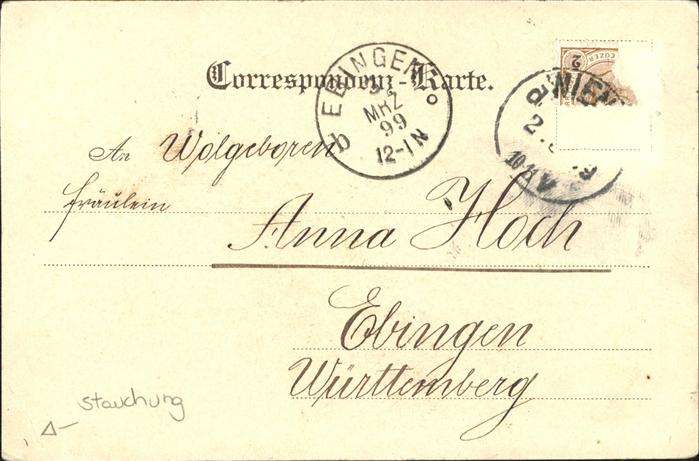 Correspondenz-Karte.
EBINGEN
3
MRZ
99
12-1N
b
2
WIEN
2
10
V
9
An Wolgeboren
fräulein
Anna Hoch
Ebingen
Württemberg
stauchung